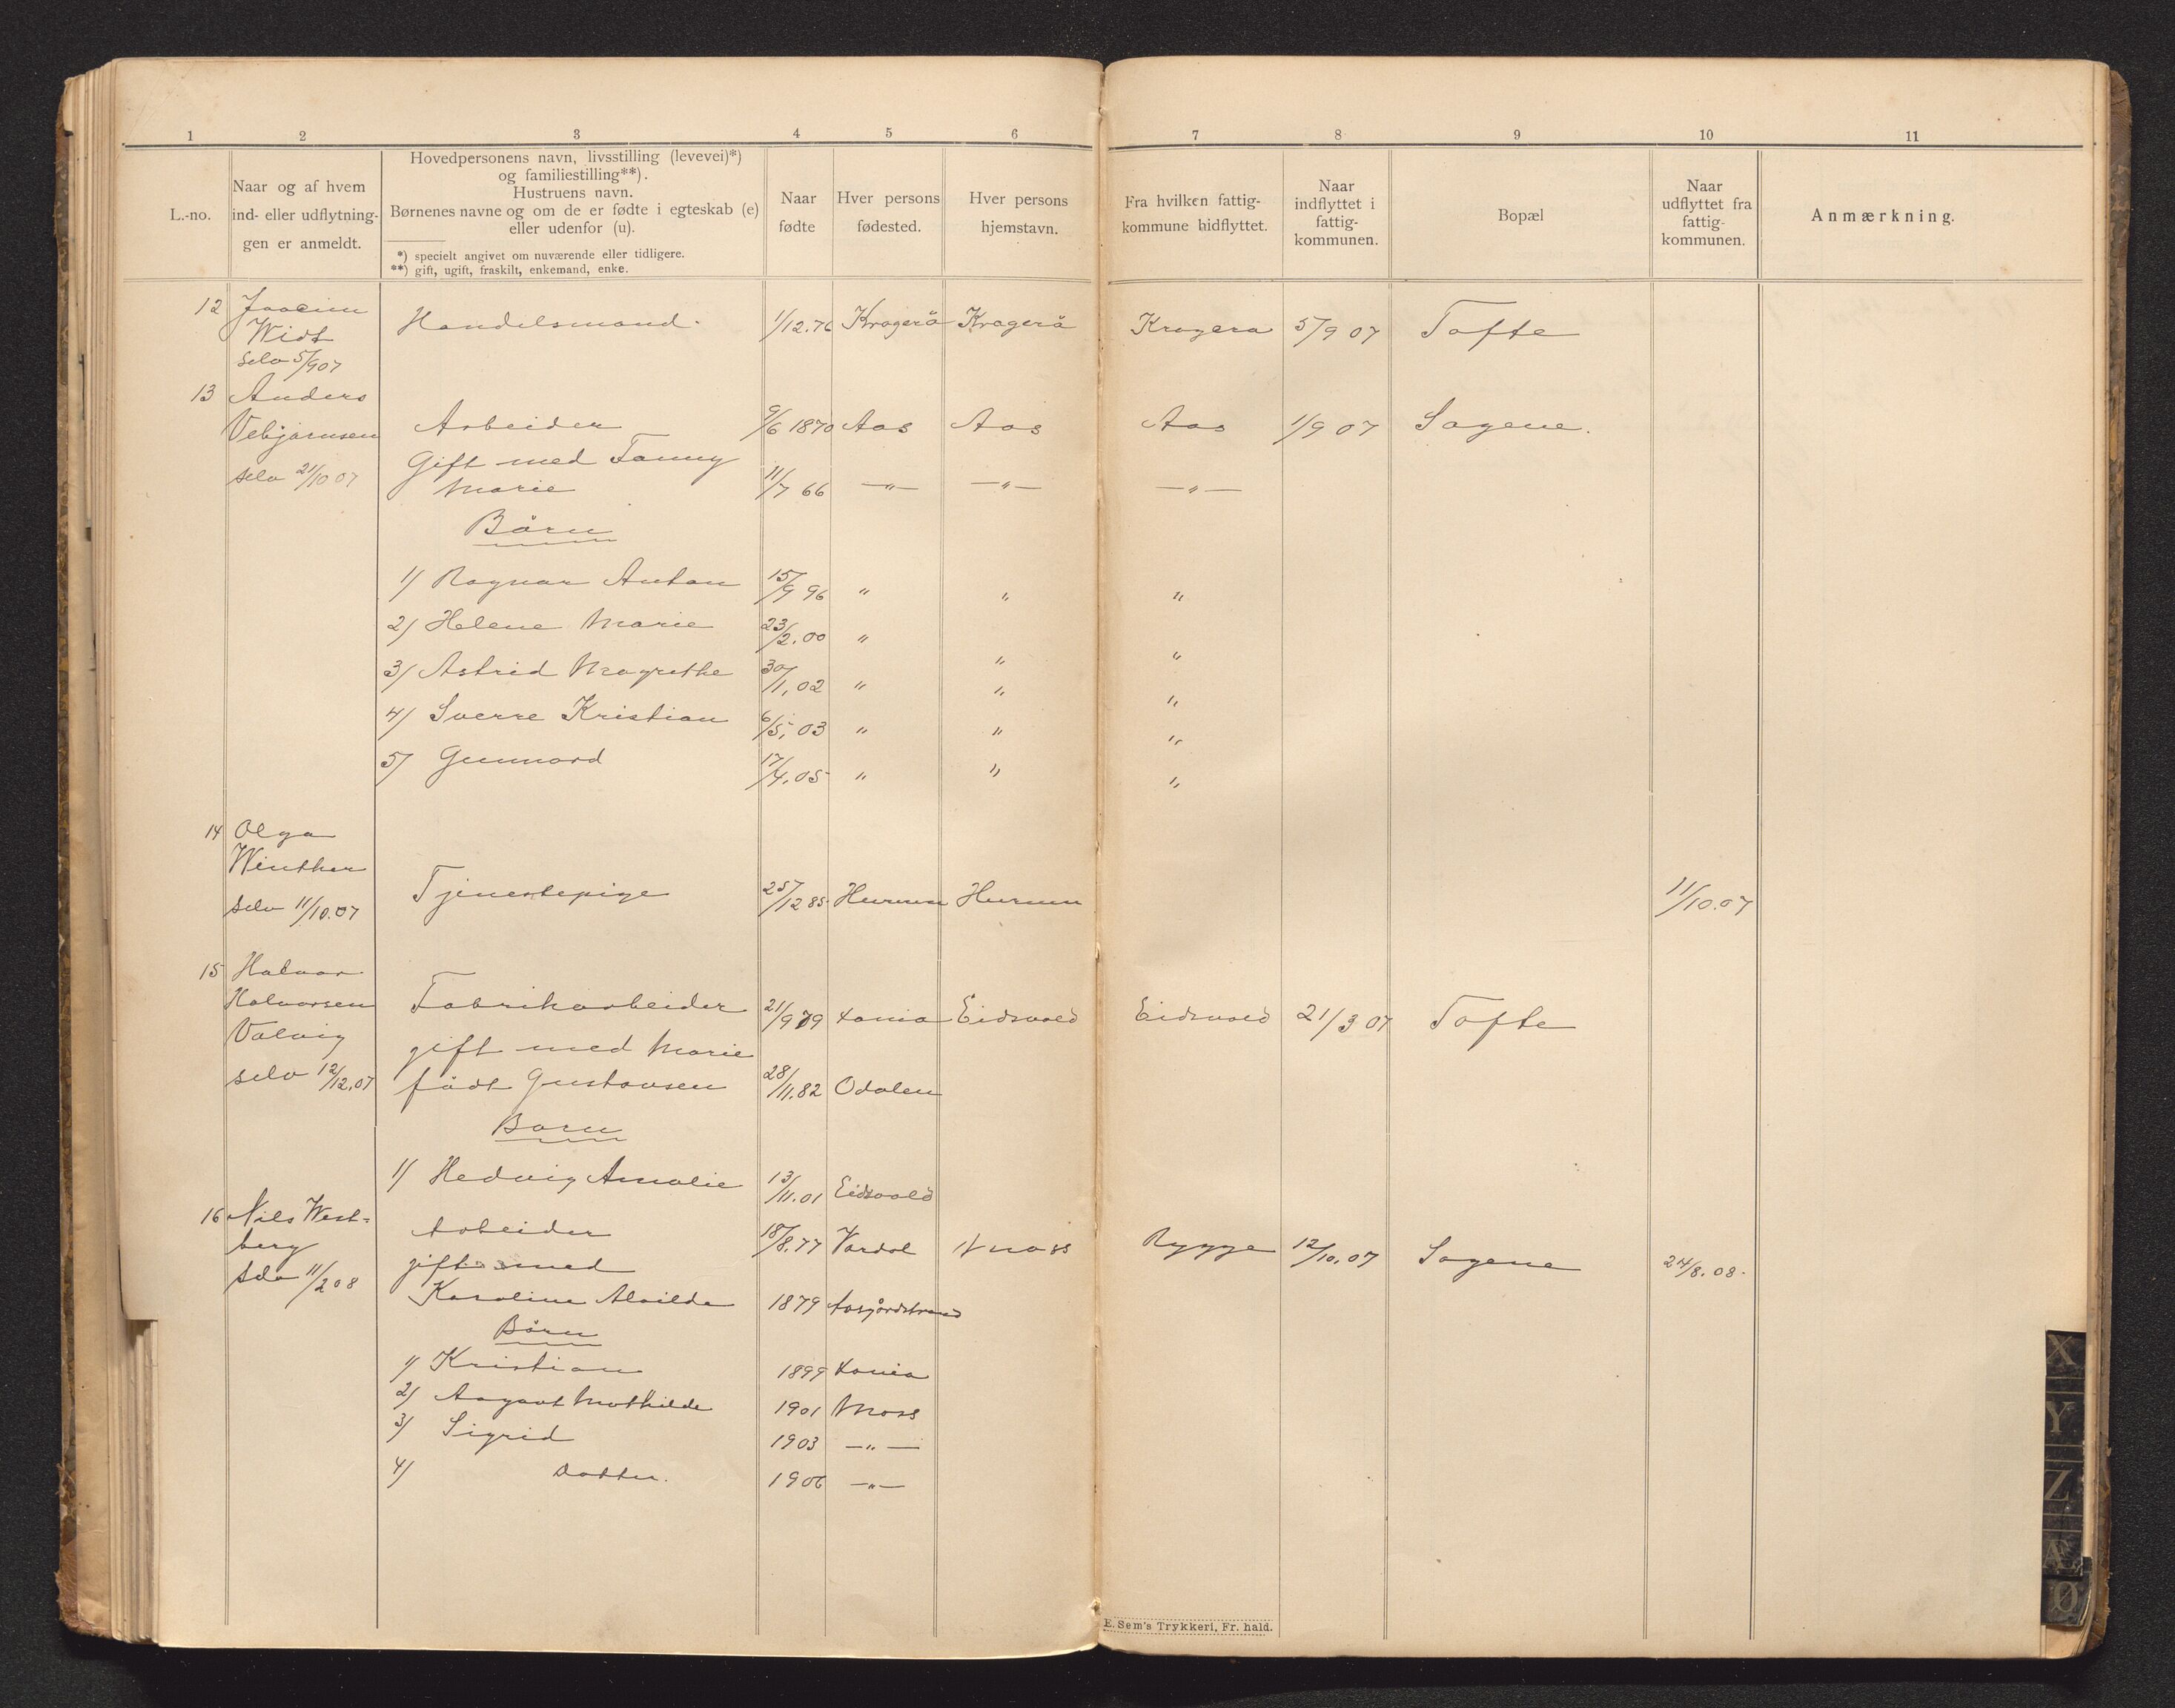 1 2 3 4 5 6 7 8 9 10 11
L.-no.
Naar og af hvem
ind- eller udflytnin-
gen er anmeldt.
Hovedpersonens navn, livsstilling (levevei)*)
og familiestilling**).
Hustruens navn.
Børnenes navne og om de er fødte i egteskab (e)
eller udenfor (u).
*) specielt angivet om nuværende eller tidligere.
**) gift, ugift, fraskilt, enkemand, enke.
Naar
fødte
Hver persons
fødested.
Hver persons
hjemstavn.
Fra hvilken fattig-
kommune hidflyttet.
Naar
indflyttet i
fattig-
kommunen.
Bopæl
Naar
udflyttet fra
fattig-
kommunen.
Anmærkning.
12 Joacim
Widt Handelsmand. 1/12.76 Kragerö Kragerö Kragerø 5/9 07 Tofte
selv 5/9 07
13 Anders
Vebjørnsen Arbeider 9/6 1870 Aas Aas Aas 1/9 07 Sagene.
Gift med Fanny
selv 21/10 07 Marie 11/7 66 —„— —„— —„—
Börn
1) Ragnar Anton 15/9 96 „ „ „
2) Helene Marie 23/2.00 „ „ „
3) Astrid Magrethe 30/1,02 „ „ „
4) Sverre Kristian 6/5, 03 „ „ „
5) Gunnard 17/4.05 „ „ „
14 Olga
Winther
selv 11/10.07 Tjenestepige 25/12 85 Hurum Hurum 11/10.07
15 Halvor
Halvorsen Fabrikarbeider 21/9 79 Xania Eidsvold Eidsvold 21/3 07 Tofte
Valvig gift med Marie
selv 12/12.07 född Gustavsen 28/11.82 Odalen
Born
1) Hedvig Amalie 13/11.01 Eidsvold
16 Nils West-
berg Arbeider 18/8.77 Vardal Moss Rygge 12/10.07 Sagene 24/8.08.
selv 11/2 08 gift med
Karoline Alvilde 1879 Aasgårdstrand
Börn
1) Kristian 1899 Xania
2) Aagaot Mathilde 1901 Moss
3) Sigrid 1903 —„—
4) Datter. 1906 —„—
E. Sem's Trykkeri, Fr. hald.
X
Y
Z
Æ
Ø